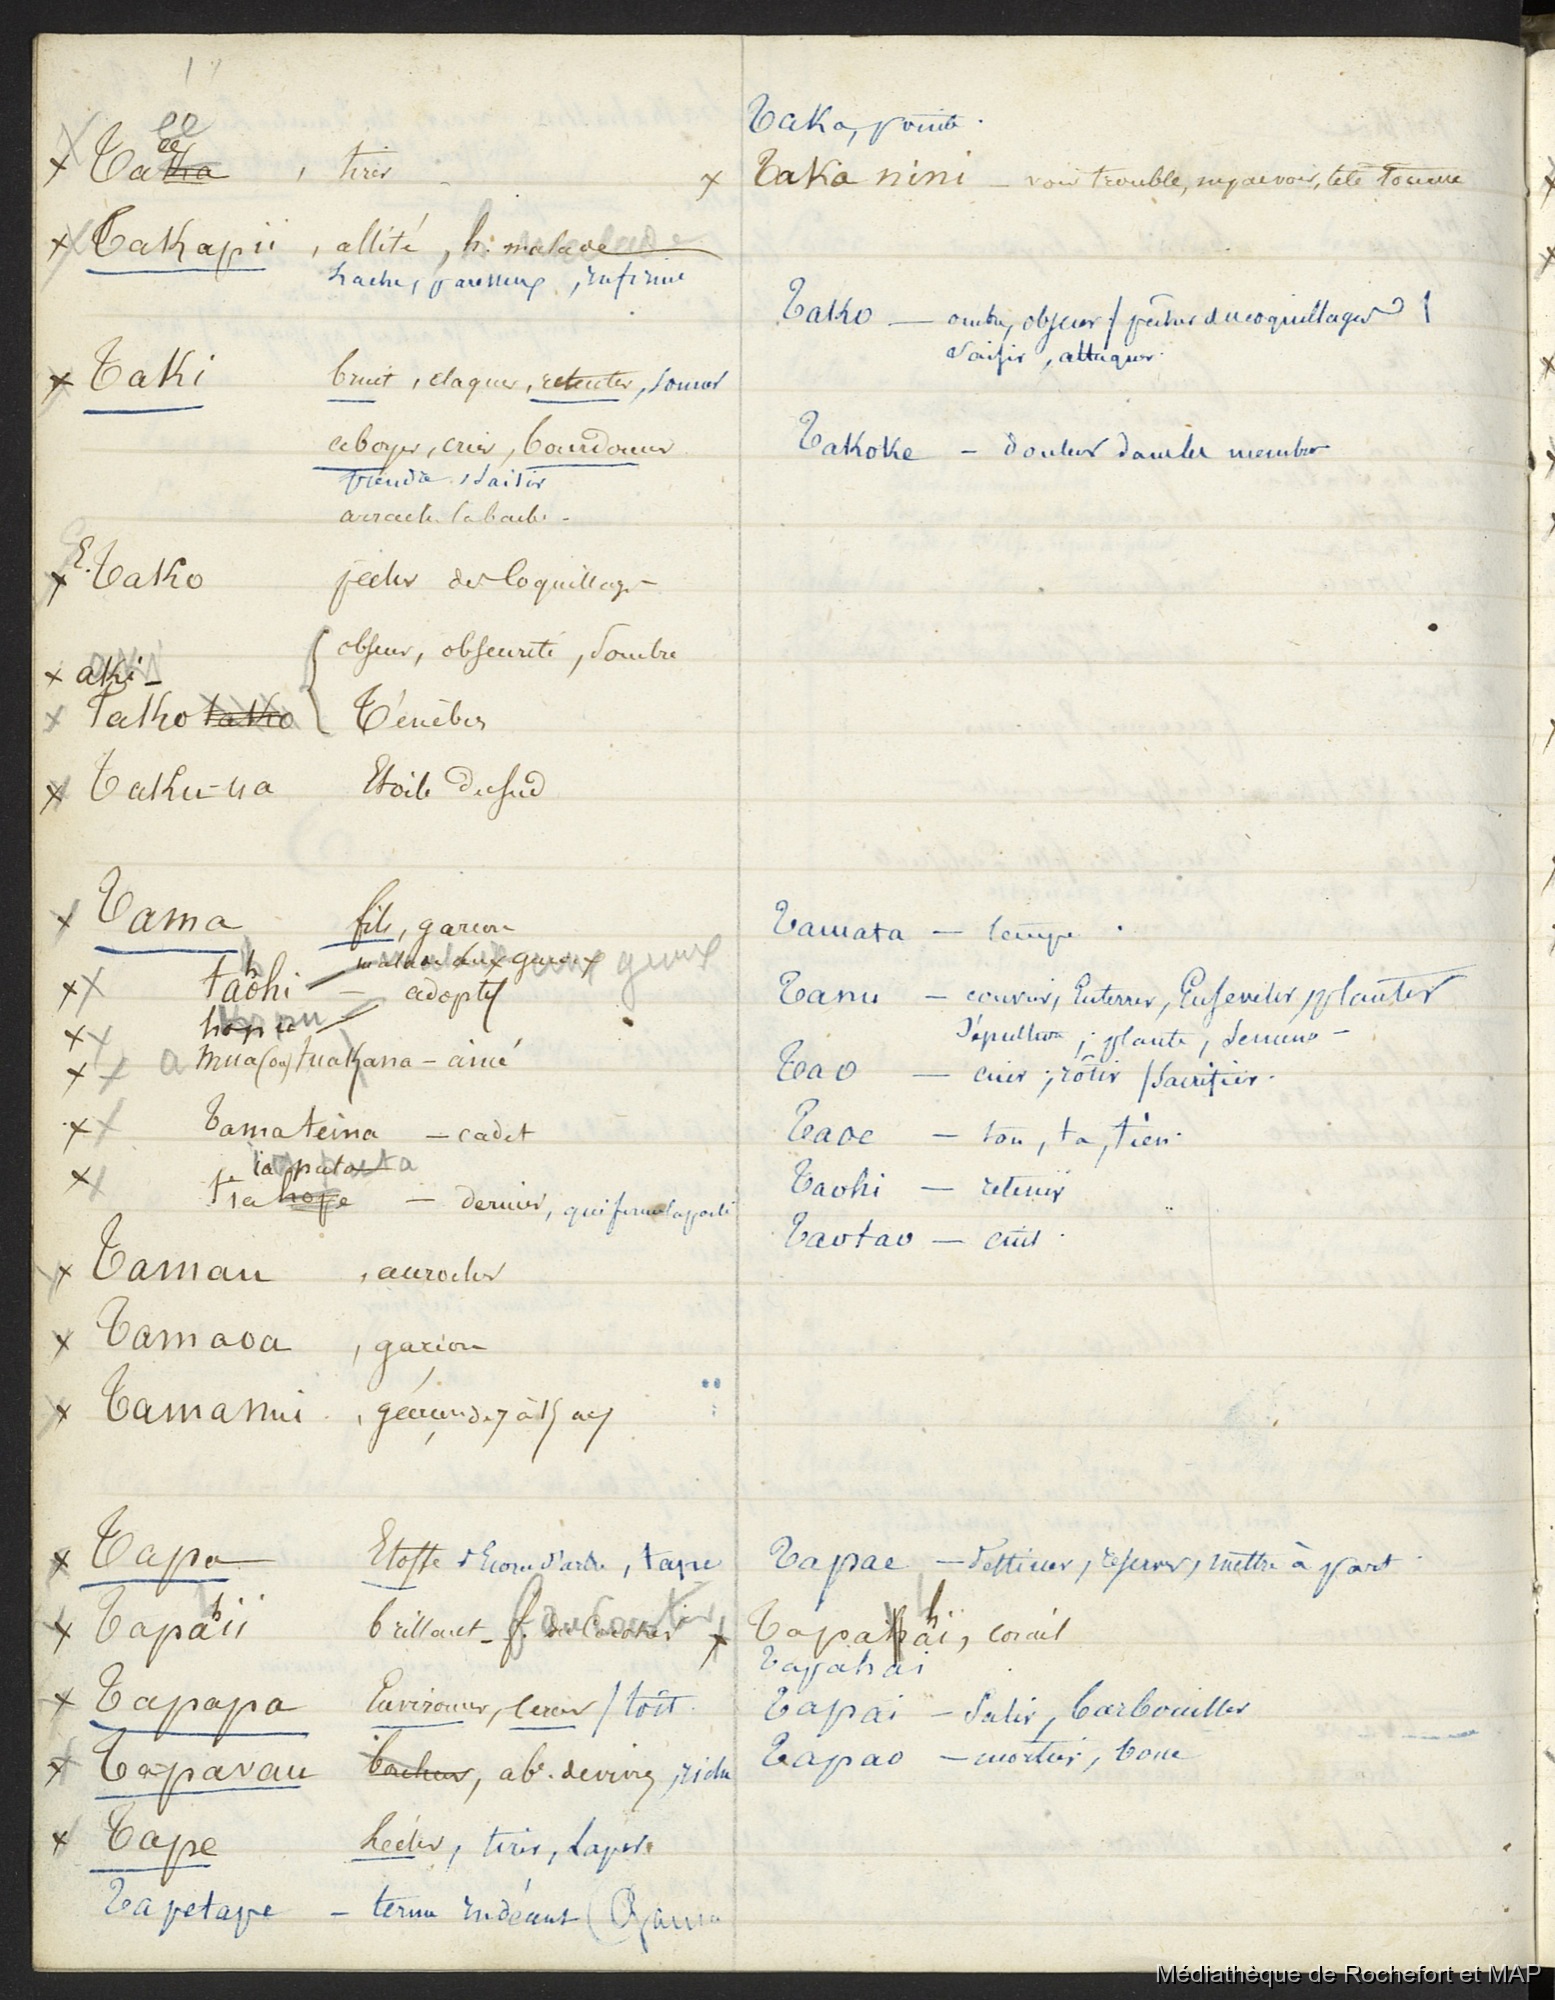 ee
ee
x Taka , tirer
x Takapii , alité, h. malade
lâche, paresseux, infirme
x Taki bruit, claquer, retentir, sonner
aboyer, crier, bourdonner
prendre, saisir
arracher la barbe -
E.
x Tako pêcher des Coquillages
x aki - obscur, obscurité, sombre
x Tako tako Ténèbres
x Taku-ua Etoile du sud
x Tama fils, garçon
h
x tahi — adoptif
x
x mua (ou) tuakana - ainé
x Tamateina — cadet
x
Tia hope — dernier, qui ferme la porte
x Tamau , accrocher
x Tamaoa , garçon
x Tamanui ,
x Tapa Etoffe d'Ecorce d'arbre, tape
h
x Tapaii brillant - f. de Cocotier
x Tapapa Environner, / toît
x Tapavau bonheur, ab. de vivres, riche
x Tape , tirer, laper
Tapetape — terme indécent (
Taka, pointe
x Taka nini — voir trouble, tête tourne
Tako — ombre, obscur / pêcher du coquillages
saisir, attaquer
Takoke — douleur dans les membres
Tamata — tempe
Tanu — couvrir, Enterrer, Ensevelir, planter
sépulture, plante, semence -
Tao — cuir, rôtir / sacrifier
Taoe — ton, ta, tien
Taohi — retenir
Taotao — cuit
Tapae — destiner, réserver, mettre à part
h
x Tapahai, corail
Tapahai
Tapai — salir, barbouiller
Tapao — mortier, boue
Médiathèque de Rochefort et MAP